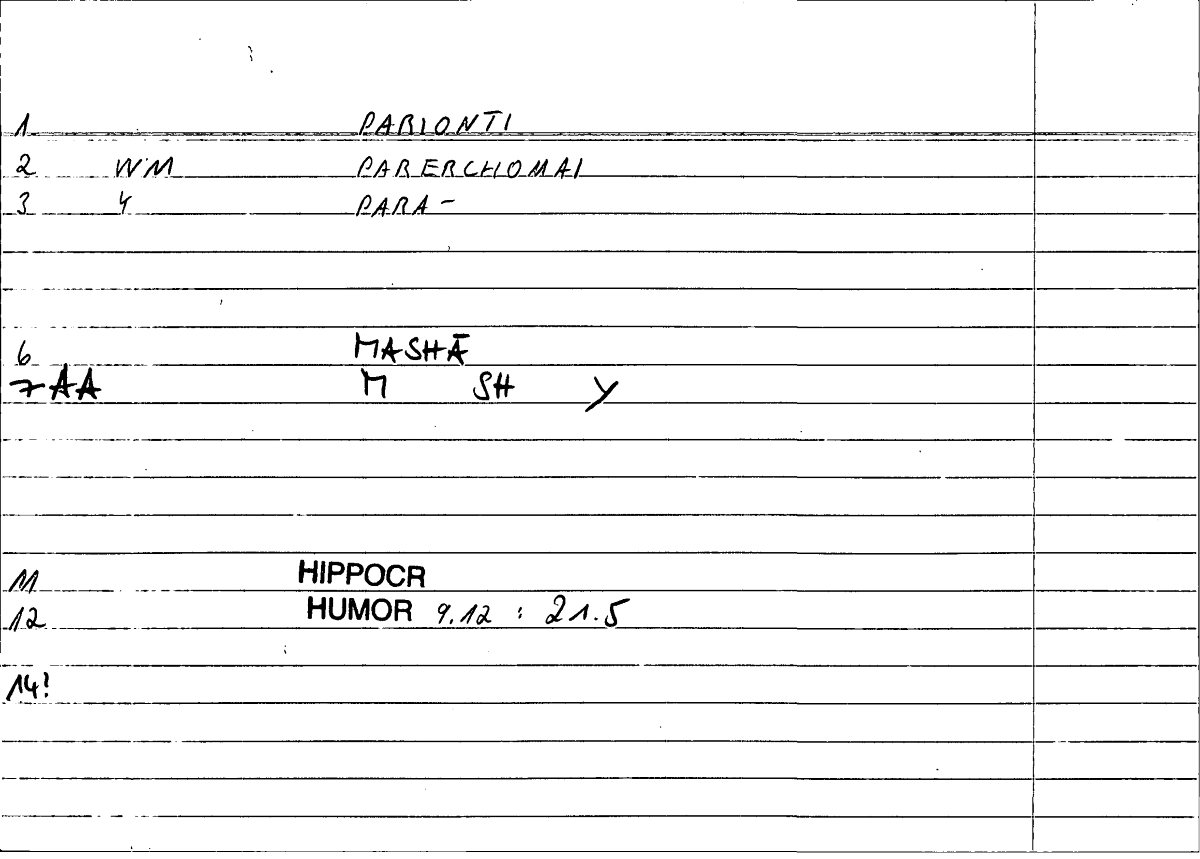 1 PARIONTI
2 WM PARERCHOMAI
3 4 PARA-
6 MASHĀ
7 AA M SH Y
11 HIPPOCR
12 HUMOR 9.12 : 21.5
14!